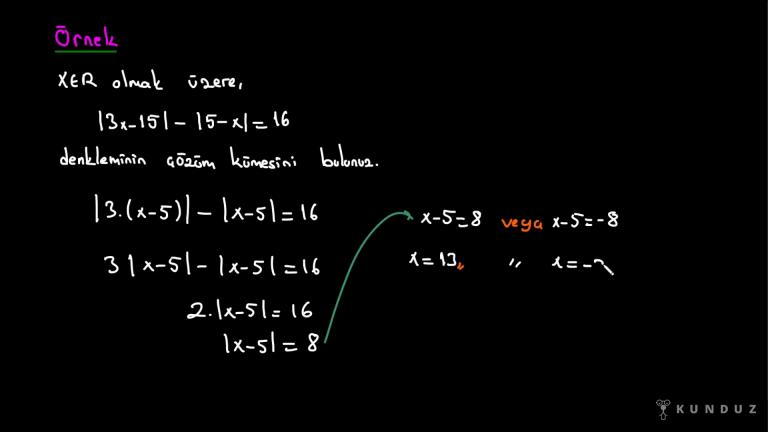 Örnek
x∈R olmak üzere,
|3x-15| - |5-x| = 16
denkleminin çözüm kümesini bulunuz.
|3.(x-5)| - |x-5| = 16
3|x-5| - |x-5| = 16
2.|x-5| = 16
|x-5| = 8
x-5=8 veya x-5=-8
x=13 " x=-
KUNDUZ